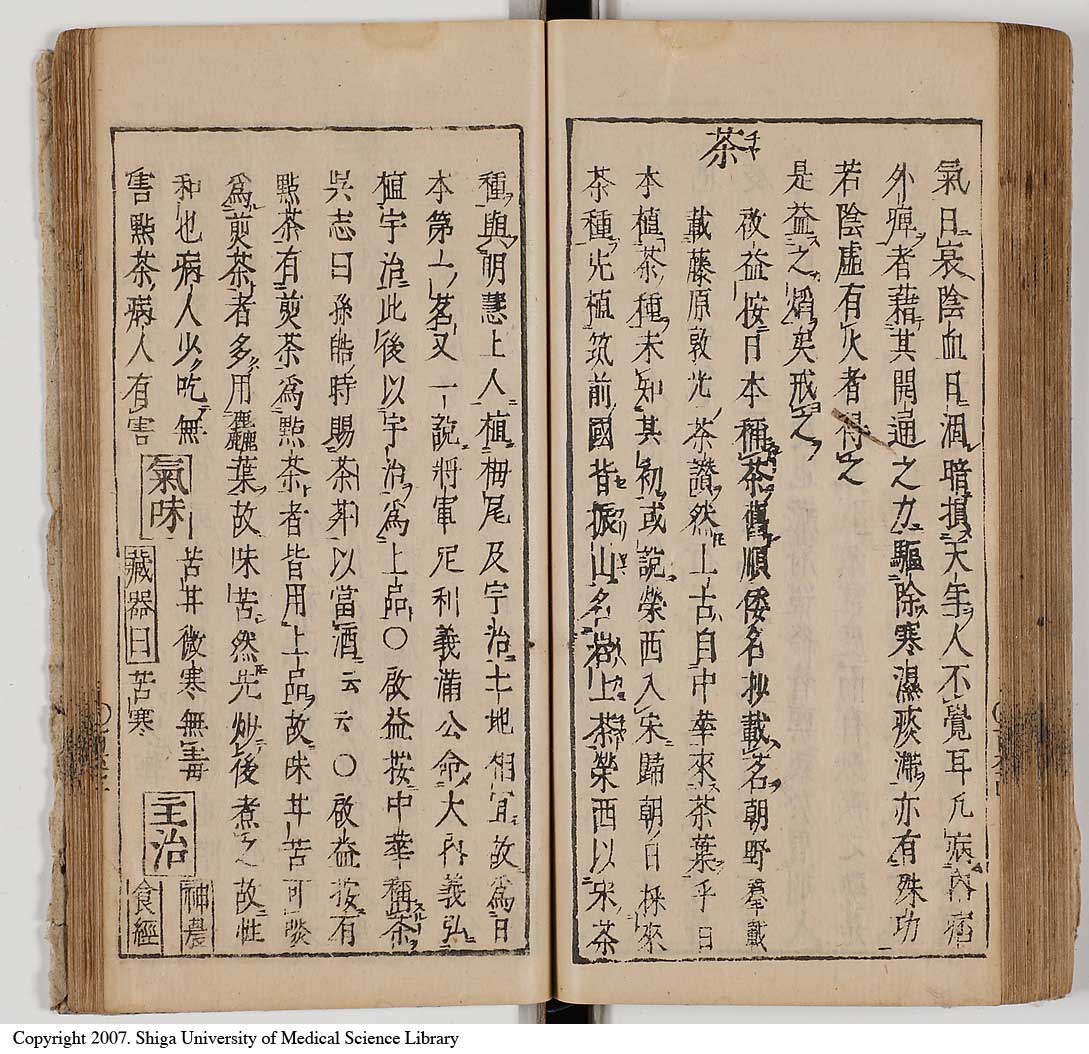 氣日衰陰血日涸暗損天年人不覺耳凡病内痞
外痺者藉其開通之力驅除寒濕痰滯亦有殊功
若陰虛有火者得之
是益之熖矣戒之
茶
啟益按日本稱茶舊順倭名抄載茗朝野羣載
載藤原敦光茶讃然上古自中華來茶葉乎日
本植茶種未知其初或說榮西入宋歸朝日採來
茶種先植筑前國背振山名岩上茶榮西以宋茶
種與明慧上人植栂尾及宇治土地相宜故爲日
本第一茗又一說將軍足利義滿公命大內義弘
植宇治此後以宇治爲上品〇啟益按中華稱茶
吳志曰孫皓時賜茶荈以當酒云云〇啟益按有
點茶有煎茶爲點茶者皆用上品故味甘苦可啖
爲煎茶者多用麤葉故味苦然先炒後煮之故性
和也病人少吃無
害點茶病人有害
氣味
苦甘微寒無毒
藏器曰苦寒
主治
神農
食經
Copyright 2007. Shiga University of Medical Science Library